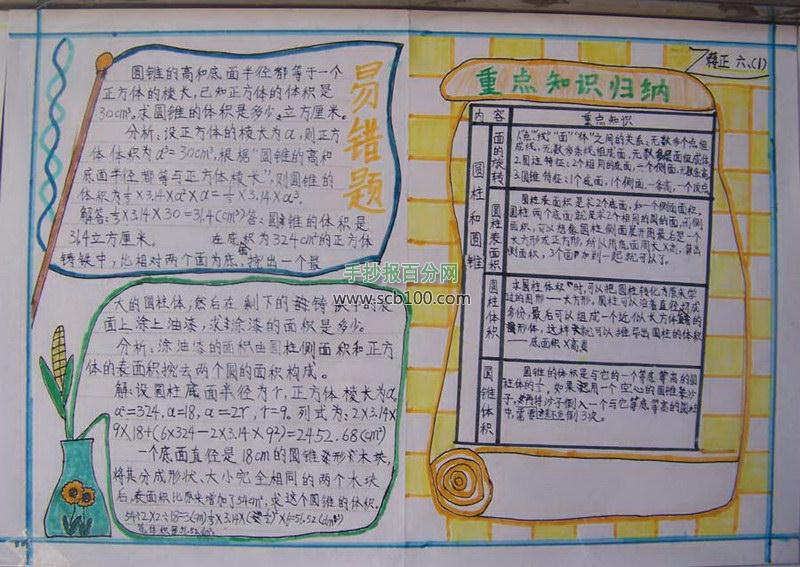 易错题
圆锥的高和底面半径都等于一个
正方体的棱长,已知正方体的体积是
30cm³,求圆锥的体积是多少立方厘米。
分析:设正方体的棱长为a,则正方
体体积为a³=30cm³,根据“圆锥的高和
底面半径都等与正方体棱长”,则圆锥的
体积为⅓×3.14×a²×a=⅓×3.14×a³.
解答:⅓×3.14×30=31.4(cm³)答:圆锥的体积是
31.4立方厘米。 在底面积为324cm²的正方体
铸铁中,以相对两个面为底,挖出一个最
大的圆柱体,然后在剩下的铸铁的表
面上涂上油漆,求涂漆的面积是多少。
分析:涂油漆的面积由圆柱侧面积和正方
体的表面积挖去两个圆的面积构成。
解:设圆柱底面半径为r,正方体棱长为a,
a²=324,a=18,a=2r,r=9。列式为:2×3.14×
9×18+(6×324-2×3.14×9²)=2452.68(cm²)
一个底面直径是18cm的圆锥形木块,
将其分成形状、大小完全相同的两个木块
后,表面积比原来增加了54cm²,求这个圆锥的体积。
释正 六、(1)
重点知识归纳
内容 重点知识
圆柱和圆锥
面的旋转
1.“点”“线”“面”“体”之间的关系:无数多个点组
成线,无数多条线组成面,无数多层面组成体
2.圆柱特征:2个相同的底面,一个侧面,无数条高
3.圆锥特征:1个底面,1个侧面,一条高,一个顶点
圆柱表面积
圆柱表面积是求2个底面,和一个侧面面积。
圆柱两个底面就是求2个相同的圆的面,而侧
面积,可以想像圆柱侧面展开图是一个
长方形或正方形,所以用底面周长×高,算出
侧面积,3个面加到一起就可以了。
圆柱体积
“求圆柱体积”时,可以把圆柱转化为原来学
过的图形——长方形,圆柱可以沿着直径切成
多份,最后可以组成一个近似长方体的
形体,这样就可以推导出圆柱的体积
——底面积×高
圆锥体积
圆锥的体积是与它的一个等底等高的圆
柱体的⅓,如果用一个空心的圆锥装沙
子,再将沙子倒入一个与它等底等高的圆柱
中,需要倒3次。
手抄报百分网
www.scb100.com